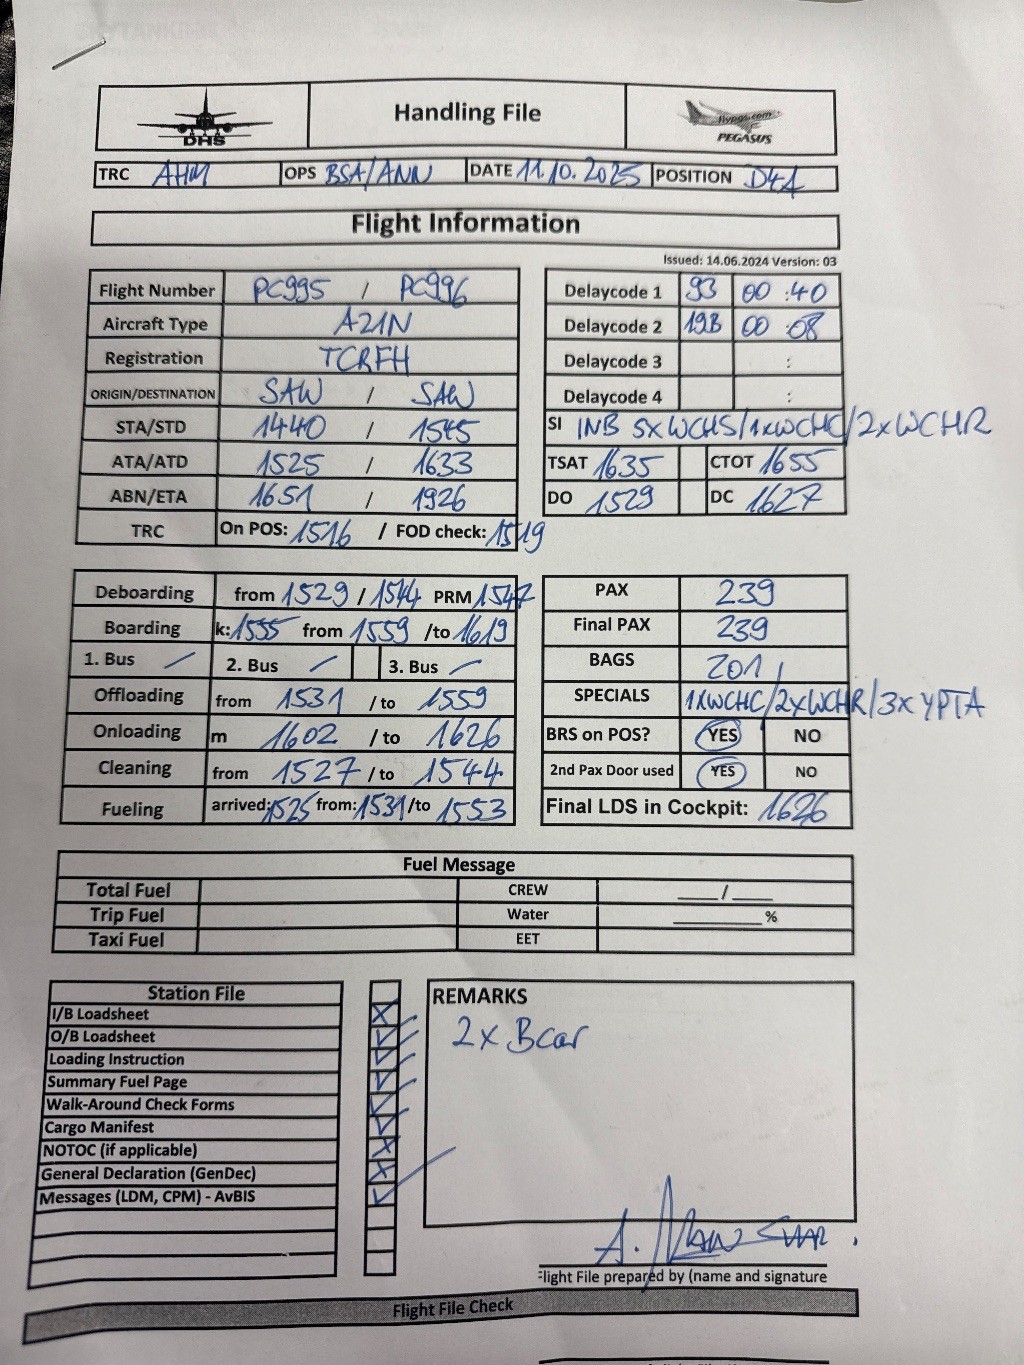 DHS
Handling File
flypgs.com
PEGASUS
TRC AHM OPS BSA/ANN DATE 11.10.2025 POSITION D4A
Flight Information
Issued: 14.06.2024 Version: 03
Flight Number PC995 / PC996
Aircraft Type A21N
Registration TCRFH
ORIGIN/DESTINATION SAW / SAW
STA/STD 1440 / 1545
ATA/ATD 1525 / 1633
ABN/ETA 1651 / 1926
TRC On POS: 1516 / FOD check: 1519
Delaycode 1 93 00 :40
Delaycode 2 19B 00 :08
Delaycode 3 :
Delaycode 4 :
SI INB 5xWCHS/1xWCHC/2xWCHR
TSAT 1635 CTOT 1655
DO 1529 DC 1627
Deboarding from 1529 / 1544 PRM 1547
Boarding k: 1555 from 1559 /to 1619
1. Bus / 2. Bus / 3. Bus /
Offloading from 1531 /to 1559
Onloading m 1602 /to 1626
Cleaning from 1527 /to 1544
Fueling arrived: 1525 from: 1531 /to 1553
PAX 239
Final PAX 239
BAGS 201
SPECIALS 1xWCHC/2xWCHR/3xYPTA
BRS on POS? YES NO
2nd Pax Door used YES NO
Final LDS in Cockpit: 1626
Fuel Message
Total Fuel CREW ___/___
Trip Fuel Water ________%
Taxi Fuel EET
Station File
I/B Loadsheet
O/B Loadsheet
Loading Instruction
Summary Fuel Page
Walk-Around Check Forms
Cargo Manifest
NOTOC (if applicable)
General Declaration (GenDec)
Messages (LDM, CPM) - AvBIS
REMARKS
2x Bcar
A.
Flight File prepared by (name and signature
Flight File Check